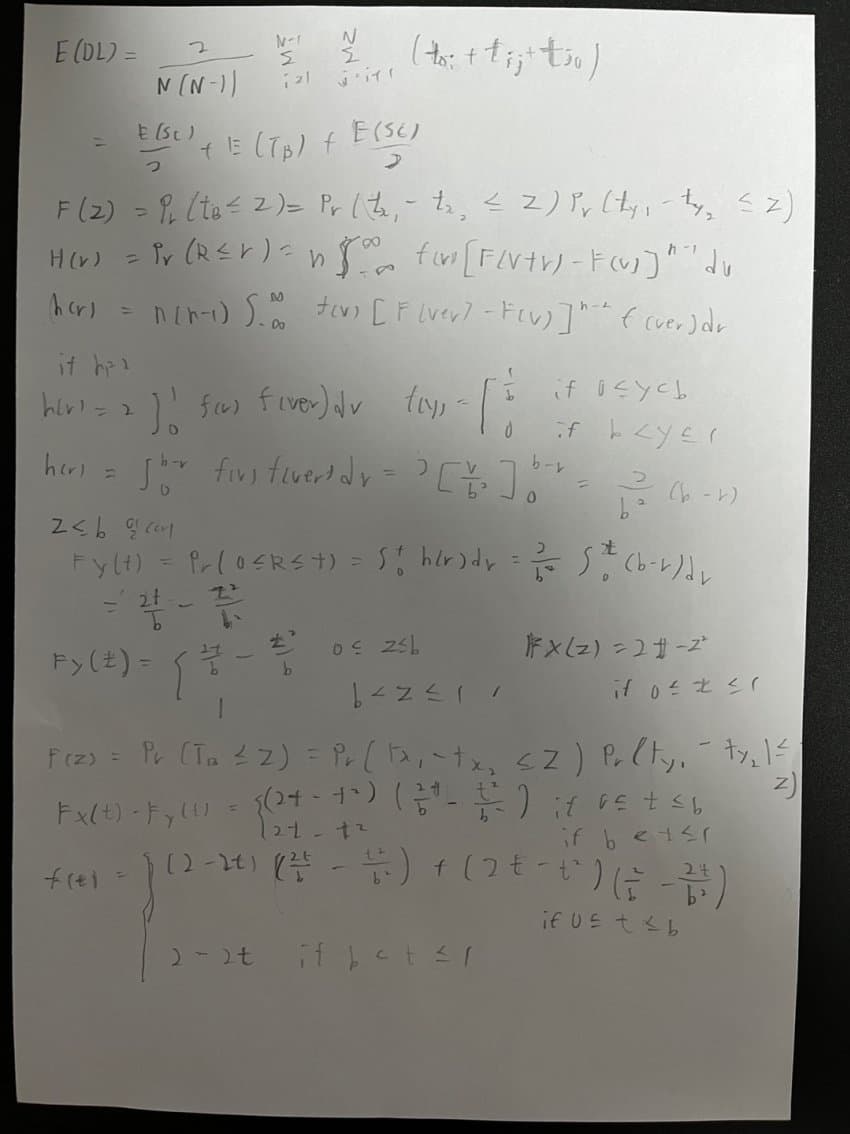 E(DL) = 2/N(N-1) Σ_{i=1}^{N-1} Σ_{j=i+1}^{N} (t_{0i} + t_{ij} + t_{j0})
= E(SC)/2 + E(T_B) + E(SC)/2
F(z) = Pr(t_B ≤ z) = Pr(t_{x1} - t_{x2} ≤ z) Pr(t_{y1} - t_{y2} ≤ z)
H(r) = Pr(R ≤ r) = n ∫_{-∞}^{∞} f(v)[F(v+r) - F(v)]^{n-1} dv
h(r) = n(n-1) ∫_{-∞}^{∞} f(v)[F(v+r) - F(v)]^{n-2} f(v+r)dv
if n=2
h(r) = 2 ∫_0^1 f(v) f(v+r)dv f(y) = [ 1/b if 0≤y<b
0 if b<y≤1
h(r) = ∫_0^{b-r} f(v) f(v+r)dv = 2[v/b²]_0^{b-r} = 2/b² (b-r)
z≤b 일 때
Fy(t) = Pr(0≤R≤t) = ∫_0^t h(r)dr = 2/b² ∫_0^t (b-r)dr
= 2t/b - t²/b²
Fy(t) = { 2t/b - t²/b 0≤z≤b FX(z) = 2t-z²
1 b<z≤1, if 0≤t≤1
F(z) = Pr(T_B ≤ z) = Pr(t_{x1} - t_{x2} ≤ z) Pr(t_{y1} - t_{y2}| ≤ z)
Fx(t)·Fy(t) = { (2t-t²)(2t/b - t²/b²) if 0≤t≤b
2t-t² if b<t≤1
f(t) = { (2-2t)(2t/b - t²/b²) + (2t-t²)(2/b - 2t/b²)
if 0≤t≤b
2-2t if b<t≤1